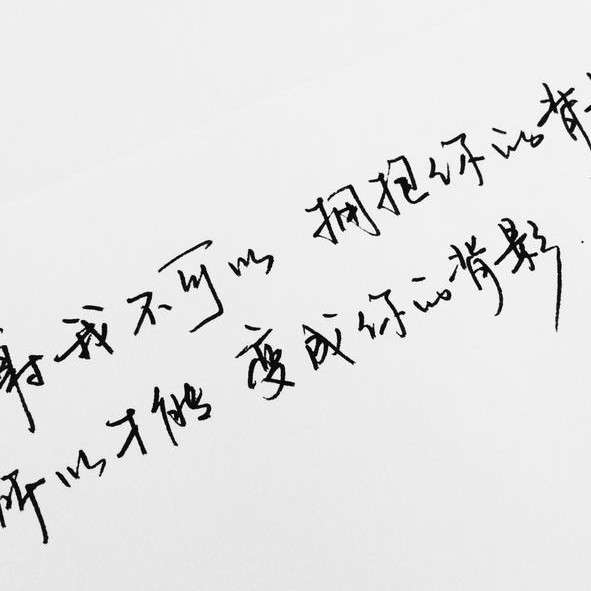 谢我不可以 拥抱你的背
所以才能 变成你的背影